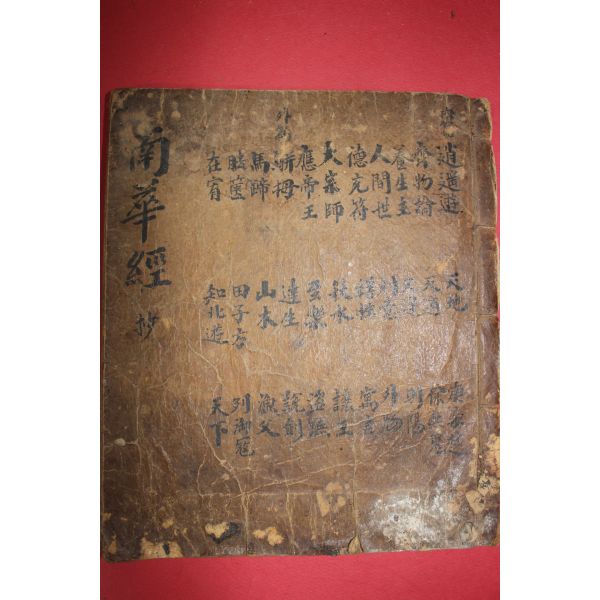 南華經 抄
逍遥遊
齊物論
養生主
人間世
德充符
大宗師
應帝王
外篇
騈拇
馬蹄
胠篋
在宥
天地
天道
天運
刻意
繕性
秋水
至樂
達生
山木
田子方
知北遊
庚桑楚
徐无鬼
則陽
外物
寓言
讓王
盜跖
說劍
漁父
列御寇
天下